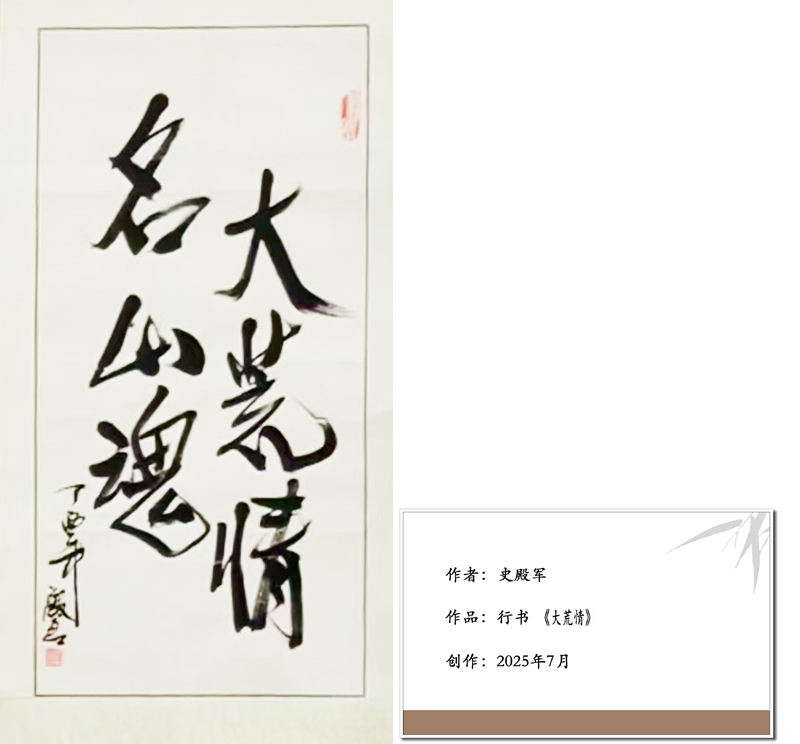 大荒情
名山魂
丁酉年
作者：史殿军
作品：行书 《大荒情》
创作：2025年7月